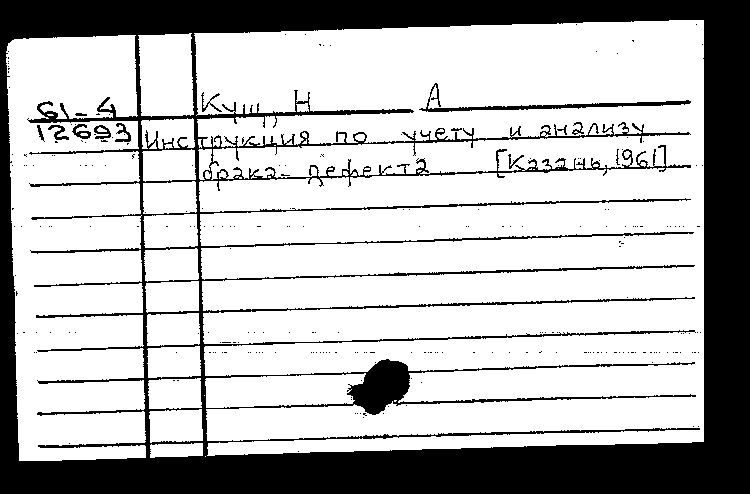 61-4 Кущ, Н А
12693 Инструкция по учету и анализу
брака-дефекта [Казань, 1961]